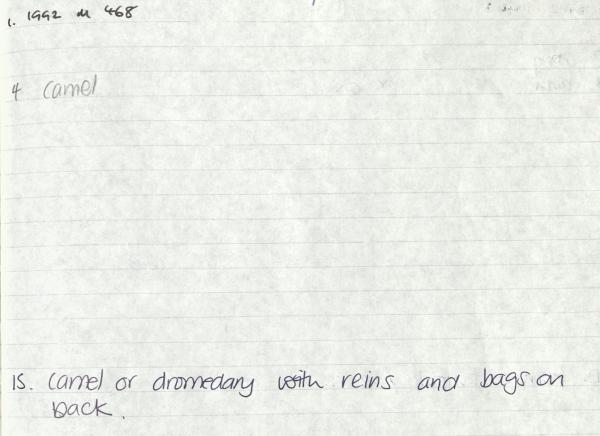 1. 1992 M 468
4 Camel
15. Camel or dromedary with reins and bags on
back.